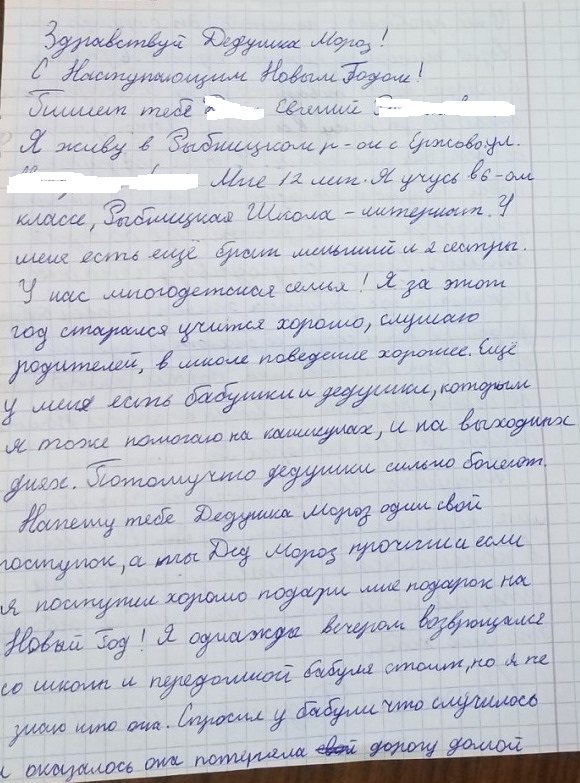 Здравствуй Дедушка Мороз!
С Наступающим Новым Годом!
Пишет тебе Евгений
Я живу в Рыбницком р-он с Ержово ул.
Мне 12 лет. Я учусь в 6-ом
классе, Рыбницкая Школа-интернат. У
меня есть ещё брат меньший и 2 сестры.
У нас многодетская семья! Я за этот
год старался учится хорошо, слушаю
родителей, в школе поведение хорошее. Ещё
у меня есть бабушки и дедушки, которым
я тоже помогаю на каникулах, и на выходных
днях. Потомучто дедушки сильно болеют.
Напешу тебе Дедушка Мороз один свой
поступок, а ты Дед Мороз прочти и если
я поступил хорошо подари мне подарок на
Новый Год! Я однажды вечером возвращался
со школы и передомной бабуля стоит, но я не
знаю кто она. Спросил у бабули что случилось
и оказалось она потеряла дорогу домой